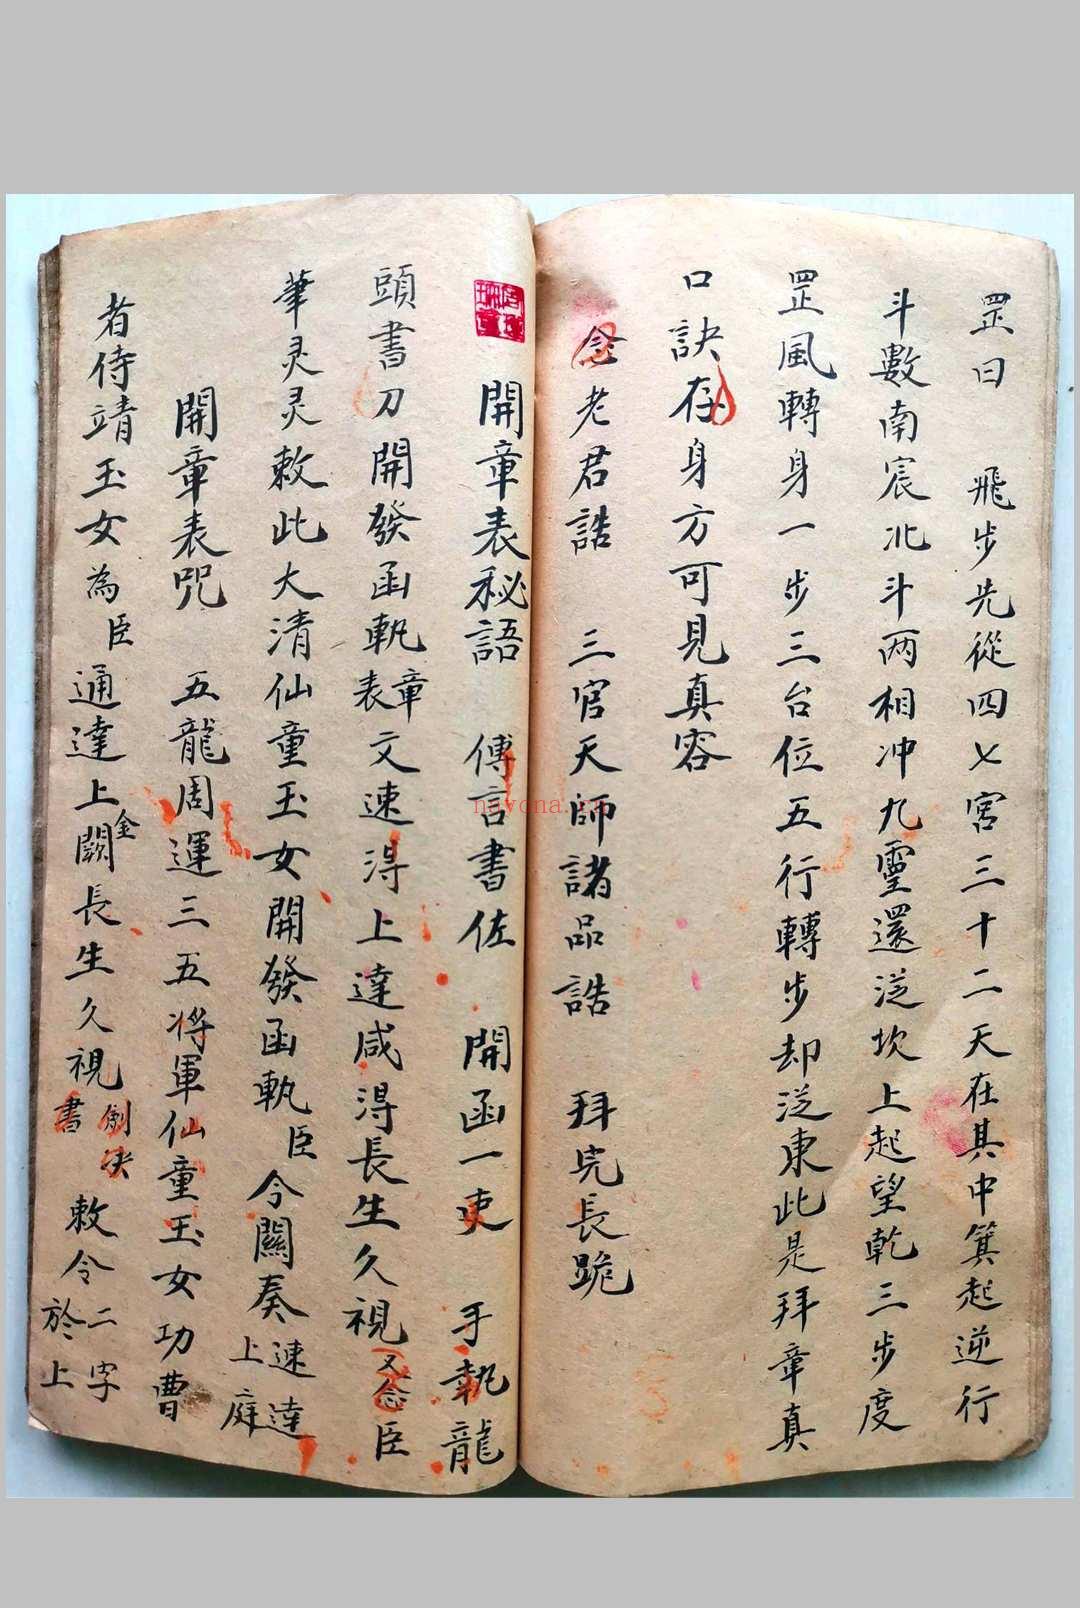 罡曰　飛步先從四七宮三十二天在其中箕起逆行
斗數南宸北斗两相冲九靈還泛坎上起望乾三步度
罡風轉身一步三台位五行轉步却泛東此是拜章真
口訣存身方可見真容
念老君誥　三官天師諸品誥　拜完長跪
開章表秘語　傅言書佐　開函一吏　手執龍
頭書刀開發函執章表文速淂上達咸淂長生久視又念臣
華灵灵敕此大清仙童玉女開發函執臣今關奏速達上庭
開章表咒　五龍周運三五将軍仙童玉女功曹
者侍靖玉女為臣通達上金闕長生久視劍决書敕令二字於上